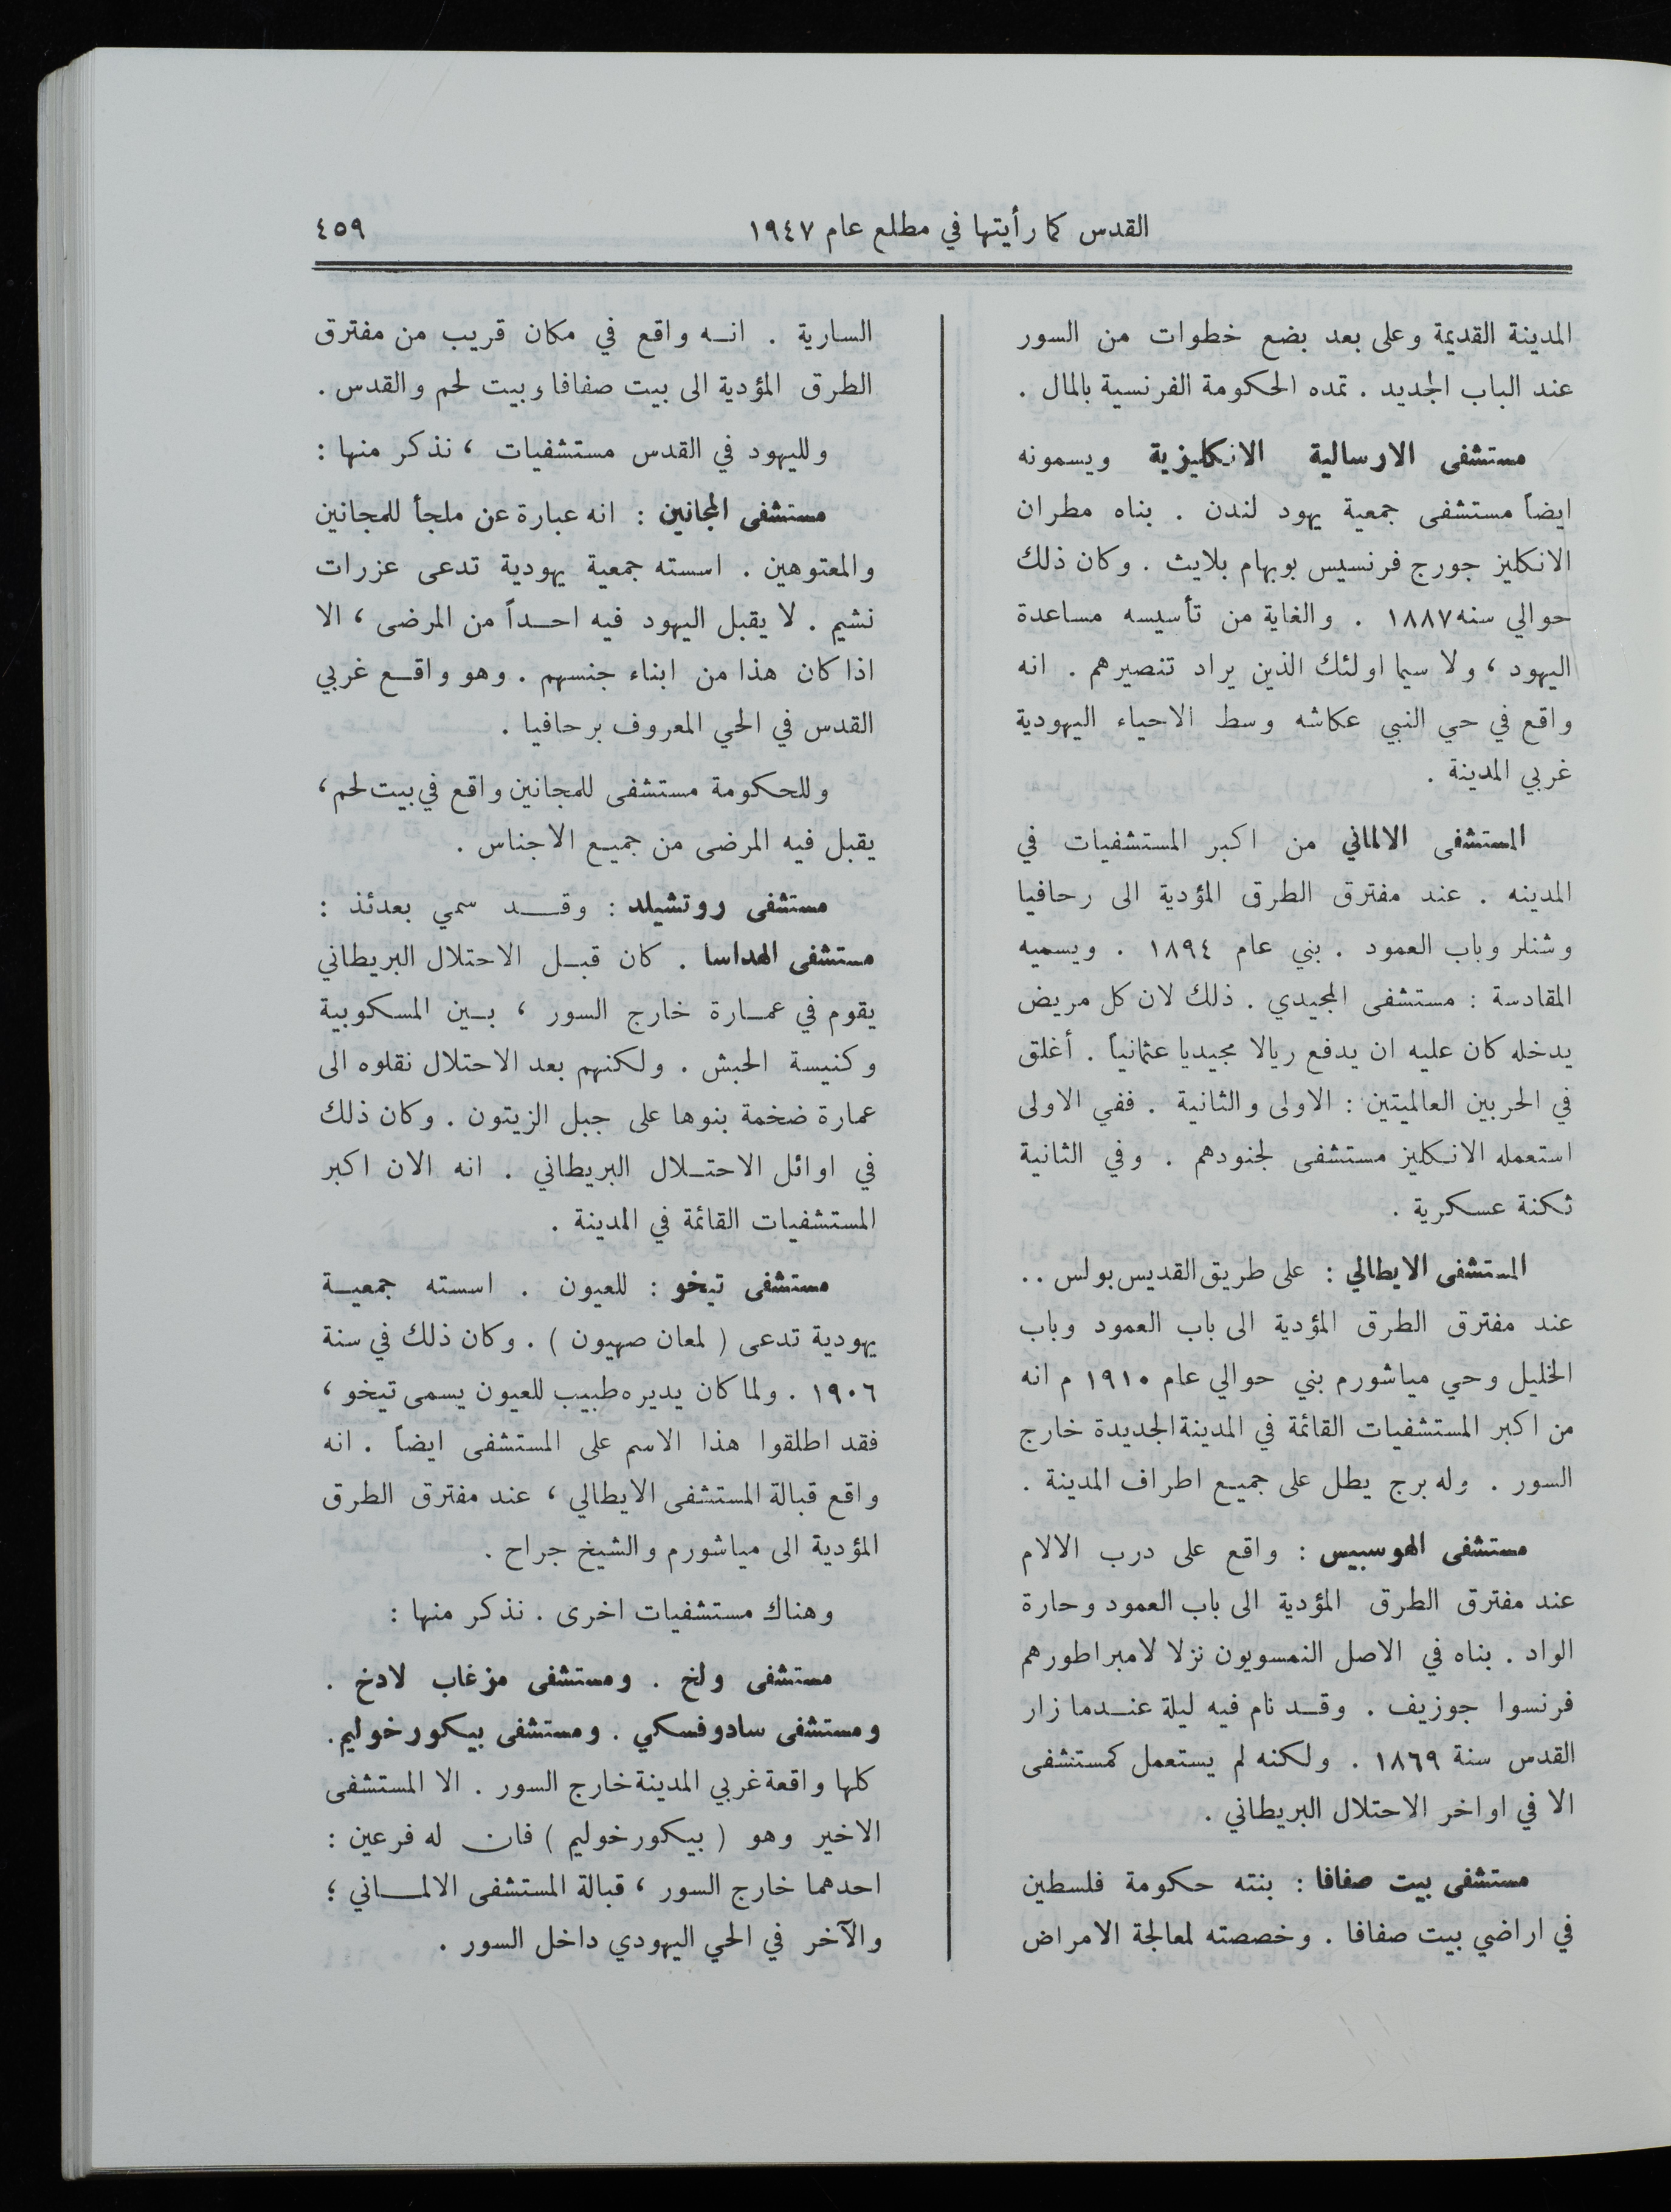 القدس كما رأيتها في مطلع عام ١٩٤٧
٤٥٩
المدينة القديمة وعلى بعد بضع خطوات من السور
عند الباب الجديد . تمده الحكومة الفرنسية بالمال .
مستشفى الارسالية الانكليزية ويسمونه
ايضاً مستشفى جمعية يهود لندن . بناه مطران
الانكليز جورج فرنسيس بوبهام بلايث . وكان ذلك
حوالي سنه ١٨٨٧ . والغاية من تأسيسه مساعدة
اليهود ، ولا سيما اولئك الذين يراد تنصيرهم . انه
واقع في حي النبي عكاشه وسط الاحياء اليهودية
غربي المدينة .
المستشفى الالماني من اكبر المستشفيات في
المدينه . عند مفترق الطرق المؤدية الى رحافيا
وشنلر وباب العمود . بني عام ١٨٩٤ . ويسميه
المقادسة : مستشفى المجيدي . ذلك لان كل مريض
يدخله كان عليه ان يدفع ريالا مجيديا عثمانياً . أغلق
في الحربين العالميتين : الاولى والثانية . ففي الاولى
استعمله الانكليز مستشفى لجنودهم . وفي الثانية
ثكنة عسكرية .
المستشفى الايطالي : على طريق القديس بولس . .
عند مفترق الطرق المؤدية الى باب العمود وباب
الخليل وحي مياشورم بني حوالي عام ١٩١٠ م انه
من اكبر المستشفيات القائمة في المدينة الجديدة خارج
السور . وله برج يطل على جميع اطراف المدينة .
مستشفى الهوسبيس : واقع على درب الالام
عند مفترق الطرق المؤدية الى باب العمود وحارة
الواد . بناه في الاصل النمسويون نزلا لامبراطورهم
فرنسوا جوزيف . وقد نام فيه ليلة عندما زار
القدس سنة ١٨٦٩ . ولكنه لم يستعمل كمستشفى
الا في اواخر الاحتلال البريطاني .
مستشفى بيت صفافا : بنته حكومة فلسطين
في اراضي بيت صفافا . وخصصته لمعالجة الامراض
السارية . انه واقع في مكان قريب من مفترق
الطرق المؤدية الى بيت صفافا وبيت لحم والقدس .
ولليهود في القدس مستشفيات ، نذكر منها :
مستشفى المجانين : انه عبارة عن ملجأ للمجانين
والمعتوهين . اسسته جمعية يهودية تدعى عزرات
نشيم . لا يقبل اليهود فيه احداً من المرضى ، الا
اذا كان هذا من ابناء جنسهم . وهو واقع غربي
القدس في الحي المعروف برحافيا .
وللحكومة مستشفى للمجانين واقع في بيت لحم ،
يقبل فيه المرضى من جميع الاجناس .
مستشفى روتشيلد : وقد سمي بعدئذ :
مستشفى الهداسا . كان قبل الاحتلال البريطاني
يقوم في عمارة خارج السور ، بين المسكوبية
وكنيسة الحبش . ولكنهم بعد الاحتلال نقلوه الى
عمارة ضخمة بنوها على جبل الزيتون . وكان ذلك
في اوائل الاحتلال البريطاني . انه الان اكبر
المستشفيات القائمة في المدينة .
مستشفى تيخو : للعيون . اسسته جمعية
يهودية تدعى ( لمعان صهيون ) . وكان ذلك في سنة
١٩٠٦ . ولما كان يديره طبيب للعيون يسمى تيخو ،
فقد اطلقوا هذا الاسم على المستشفى ايضاً . انه
واقع قبالة المستشفى الايطالي ، عند مفترق الطرق
المؤدية الى مياشورم والشيخ جراح .
وهناك مستشفيات اخرى . نذكر منها :
مستشفى ولخ . ومستشفى مزغاب لادخ .
ومستشفى سادوفسكي . ومستشفى بيكورخوليم .
كلها واقعة غربي المدينة خارج السور . الا المستشفى
الاخير وهو ( بيكورخوليم ) فان له فرعين :
احدهما خارج السور ، قبالة المستشفى الالماني ؛
والآخر في الحي اليهودي داخل السور .